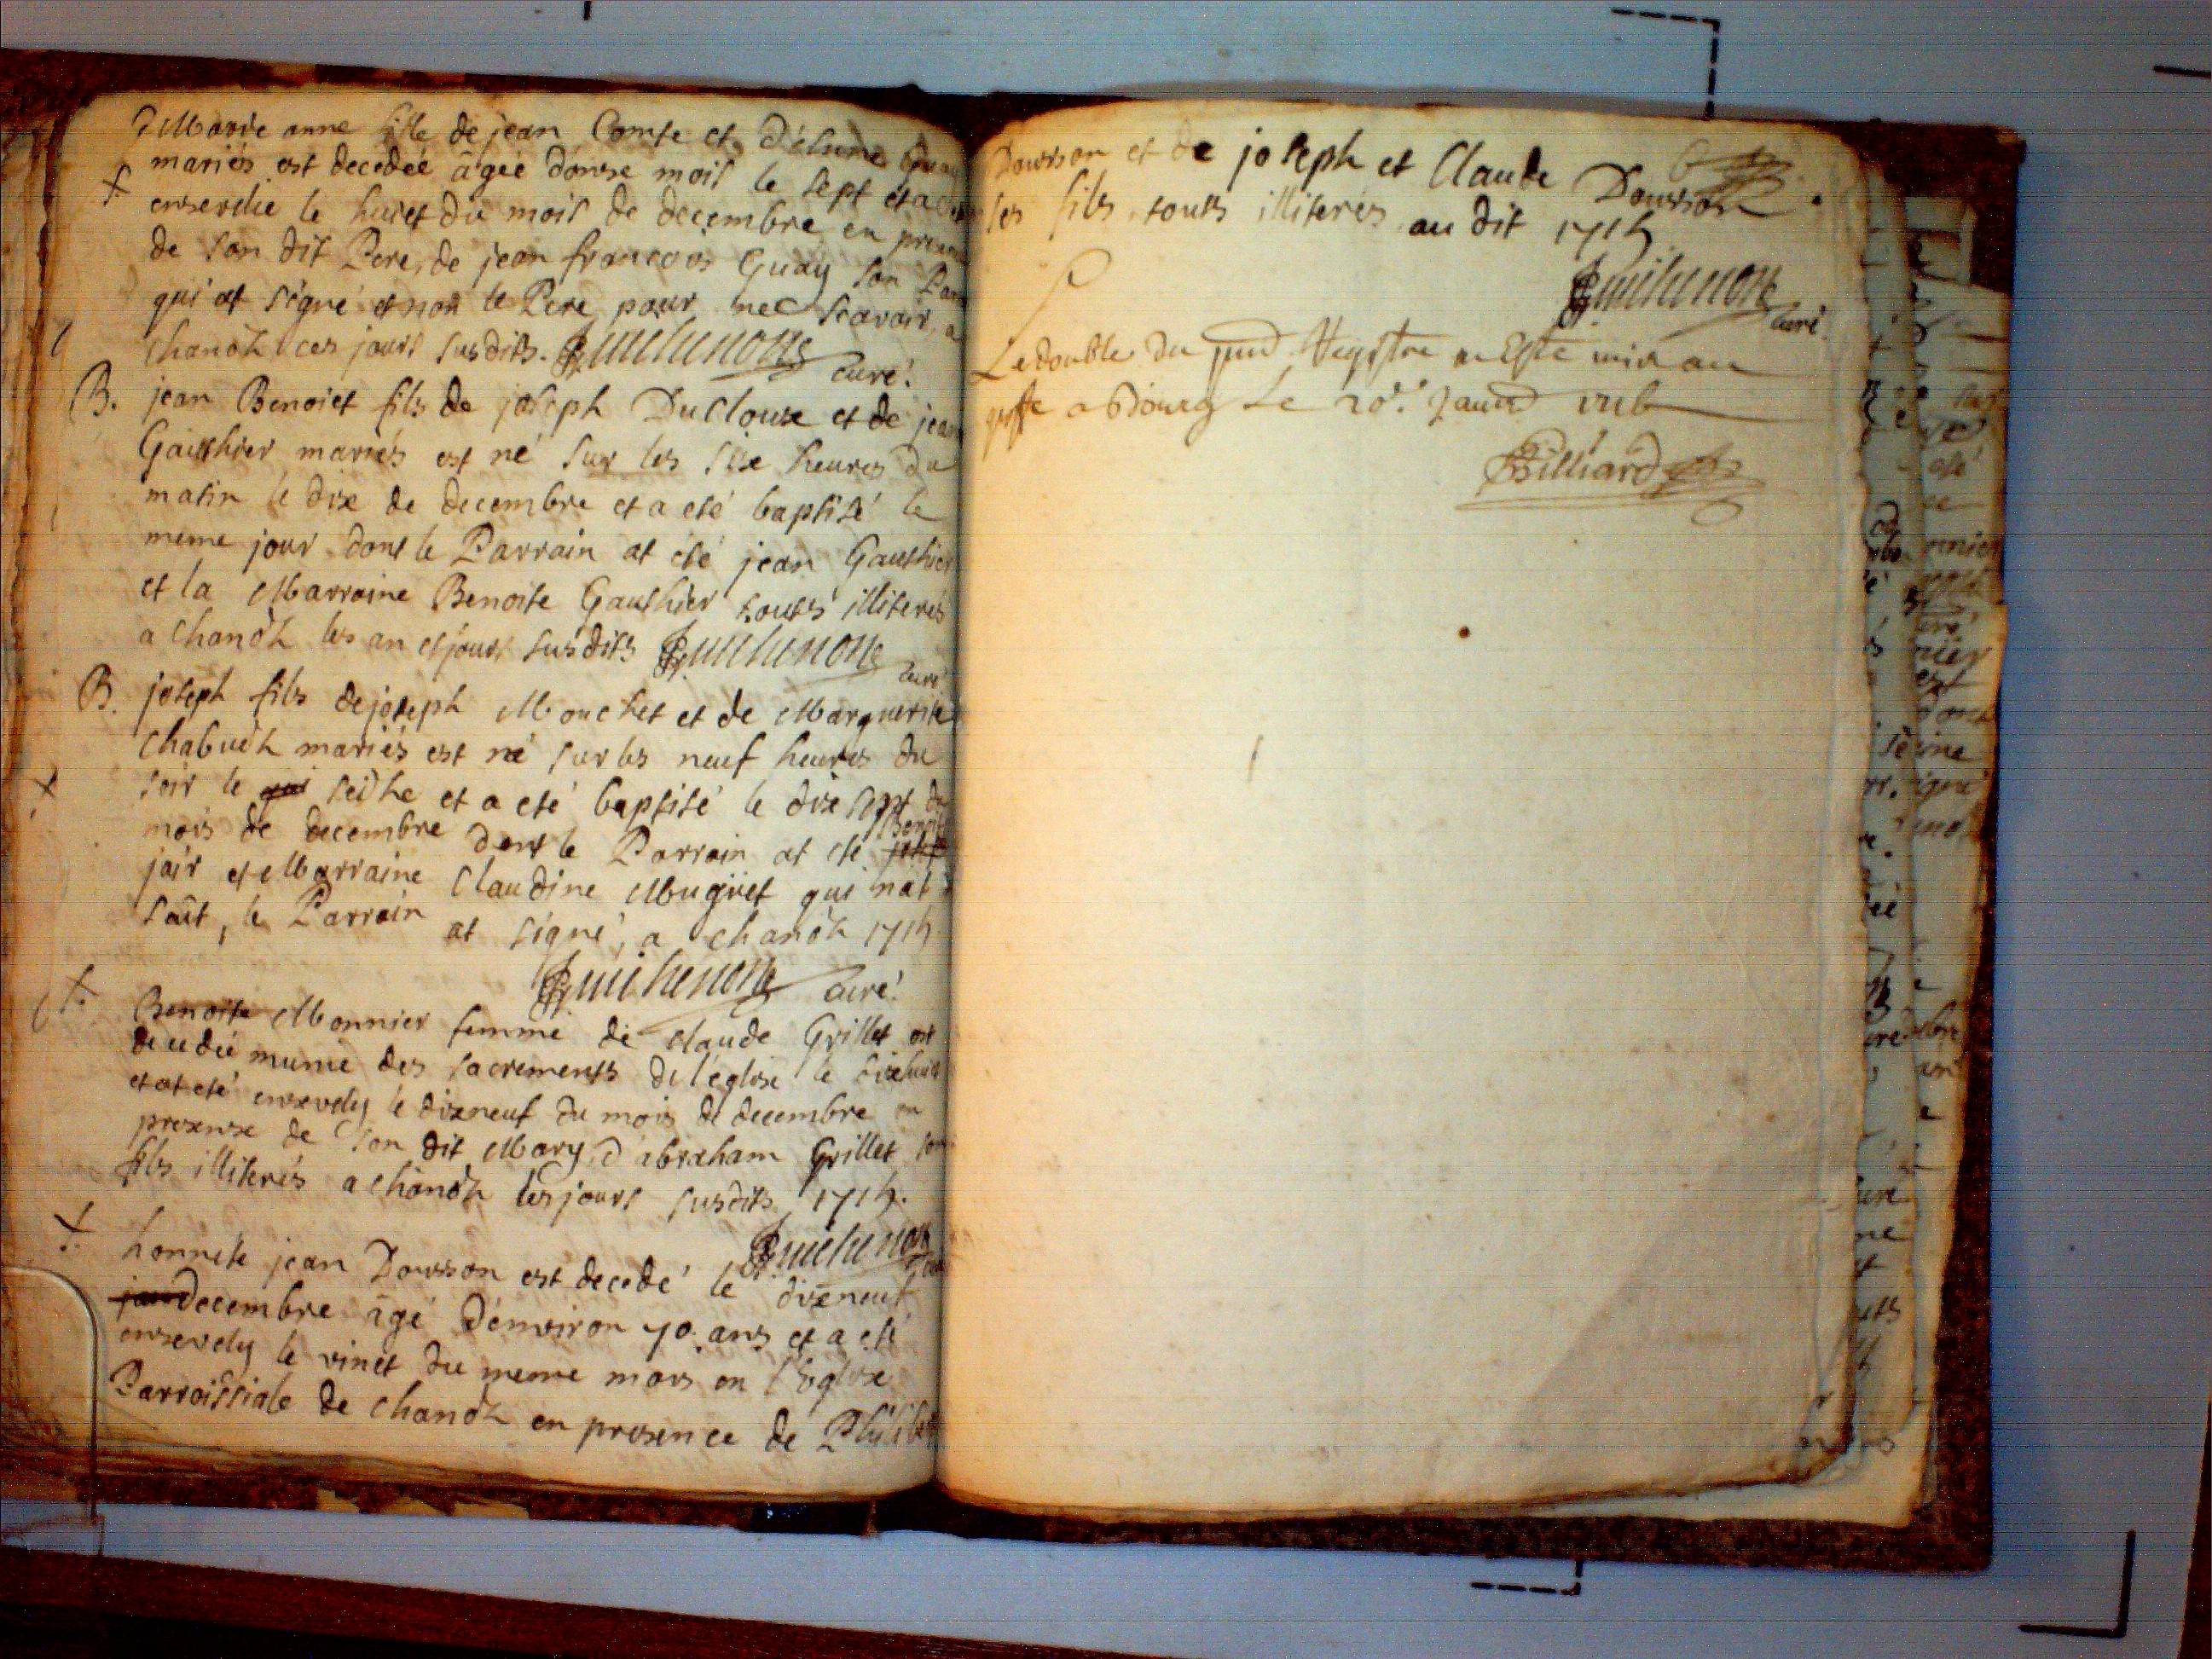 Marie anne fille de jean Comte et
mariés est decedée âgée donse mois le sept et a
+ ensevelie le huict du mois de decembre en
de son dit Pere, de jean francois Guay son
qui at signé et non le Pere pour ne scavoir, a
chanoz ces jours susdits. Guichenon curé.
B. jean Benoict fils de joseph Duclouse et de
Gauthier mariés est né sur les sixe heures du
matin le dix de decembre et a eté baptisé le
meme jour dont le Parrain at eté jean Gauthier
et la Marraine Benoite Gauthier touts illiterés
a chanoz les an et jours susdits Guichenon curé
B. joseph fils de joseph Mouchet et de Marguerite
chabuet mariés est né sur les neuf heures du
+ soir le seidze et a eté baptisé le dix sept du
Benoit
mois de decembre dont le Parrain at eté
jair et Marraine Claudine Muguet qui nat
sait, le Parrain at signé, a chanoz 1715
Guichenon curé.
+. Benoite Monnier femme de claude Grillet est
decedée munie des sacrements de l'eglise le dixhuict
et at eté ensevely le dixneuf du mois de decembre en
presense de son dit Mary d'abraham Grillet son
fils illiterés a chanoz les jours susdits 1715.
Guichenon
+ honnete jean Dousson est decedé le dixneuf
decembre âgé d'environ 70. ans et a eté
ensevely le vinct du meme mois en l'Eglise
Parroissiale de chanoz en presence de Philibert
Dousson et de joseph et Claude Dousson
ses fils touts illiterés au dit 1715
Guichenon curé.
Le double du pnd Registre a Este mis au
greffe a Bourg Le 20e. Janvd
Billiard